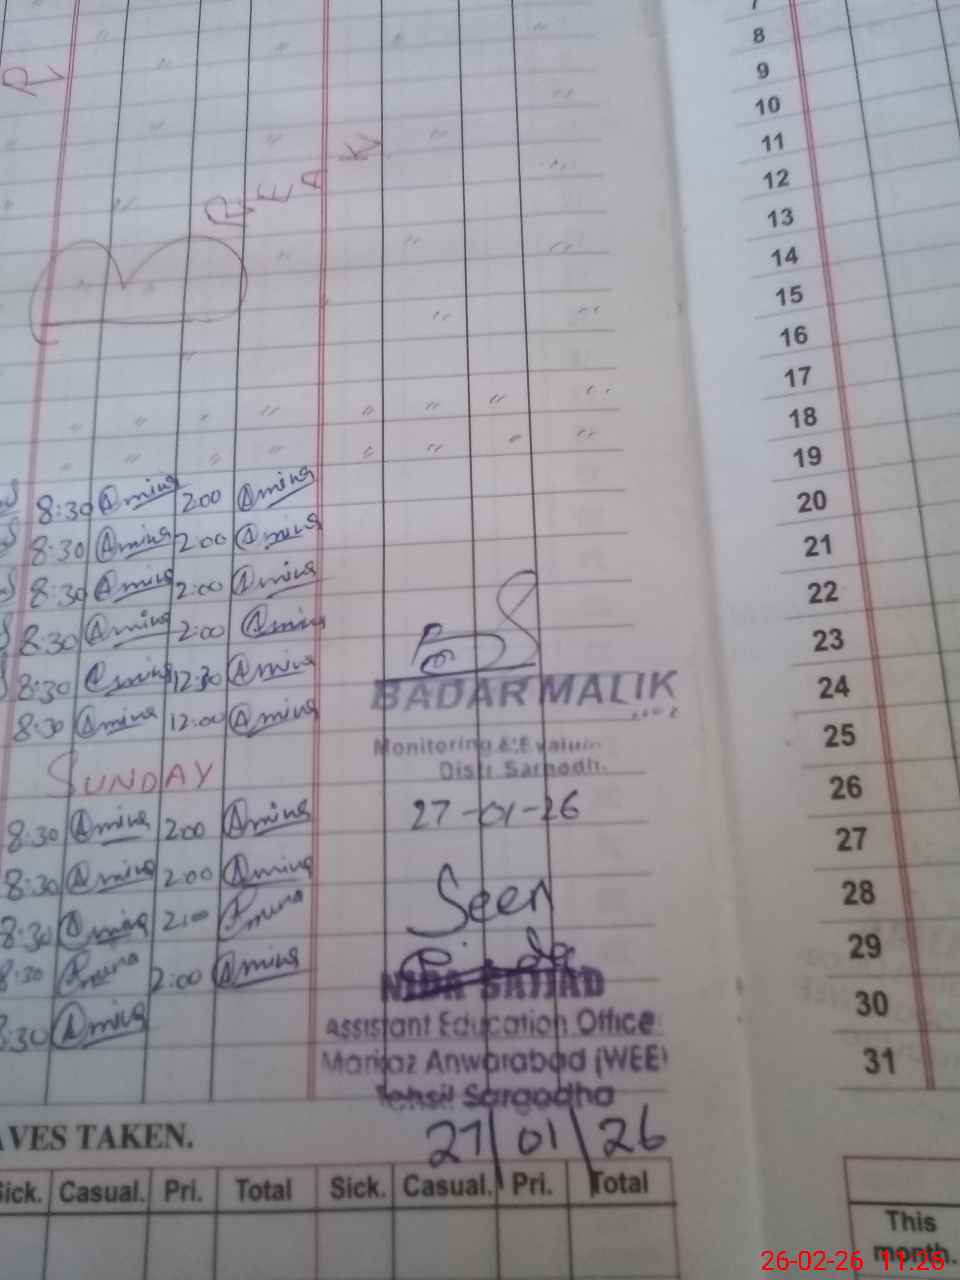 B R E A K
8:30 Amina 2:00 Amina
8:30 Amina 2:00 Amina
8:30 Amina 2:00 Amina
8:30 Amina 2:00 Amina
8:30 Amina 12:30 Amina
8:30 Amina 12:00 Amina
SUNDAY
8:30 Amina 2:00 Amina
8:30 Amina 2:00 Amina
8:30 Amina 2:00 Amina
8:30 Amina 2:00 Amina
8:30 Amina
BADAR MALIK
Monitoring &
27-01-26
Seen
NIDA SAJJAD
Assistant Education Office
Markaz Anwarabad (WEE)
Tehsil Sargodha
27/01/26
TAKEN.
Sick. Casual. Pri. Total Sick. Casual. Pri. Total
8
9
10
11
12
13
14
15
16
17
18
19
20
21
22
23
24
25
26
27
28
29
30
31
This
month.
26-02-26 11:26